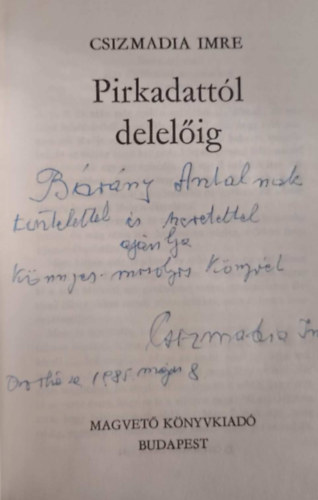 CSIZMADIA IMRE
Pirkadattól
delelőig
Bárány Antalnak
tisztelettel és szeretettel
ajánlja
Könnyes-mosolyos könyvét
Csizmadia Im
1985 május 8
MAGVETŐ KÖNYVKIADÓ
BUDAPEST